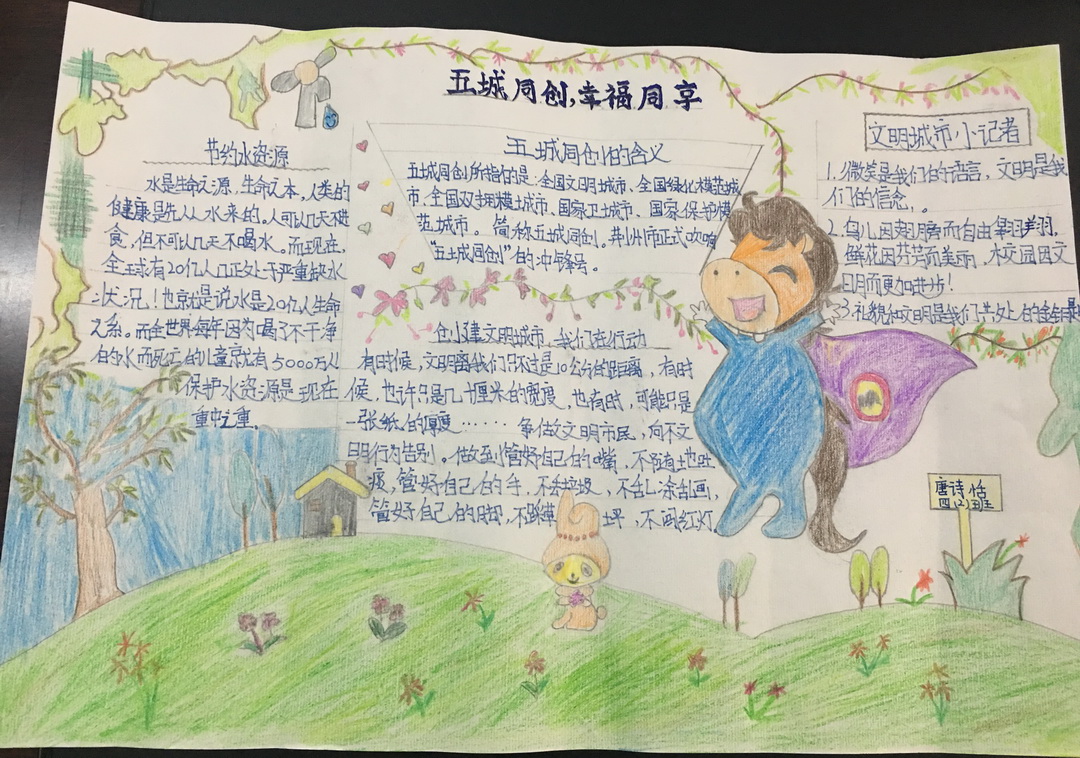 五城同创,幸福同享
节约水资源
水是生命之源,生命之本,人类的
健康是先从水来的,人可以几天不进
食,但不可以几天不喝水。而现在,
全球有20亿人口正处于严重缺水
状况!也就是说水是20亿人生命
之系。而全世界每年因为喝了不干净
的水而死亡的儿童就有5000万以
保护水资源是现在
重中之重。
五城同创的含义
五城同创所指的是:全国文明城市、全国绿化模范城
市、全国双拥模城市、国家卫生城市、国家保护模
范城市。简称五城同创。荆州市正式吹响
“五城同创”的冲锋号。
创建文明城市,我们在行动
有时候,文明离我们只不过是10公分的距离,有时
候,也许只是几十厘米的宽度,也有时,可能只是
一张纸的厚度……争做文明市民,向不文
明行为告别。做到管好自己的嘴,不随地吐
痰,管好自己的手,不丢垃圾,不乱涂乱画,
管好自己的脚,不踩草坪,不闯红灯
文明城市小记者
1.微笑是我们的语言,文明是我
们的信念。
2.鸟儿因翅膀而自由翱翔,
鲜花因芬芳而美丽,校园因文
明而更加进步!
3.礼貌和文明是我们共处的金钥
唐诗恬
四(2)班